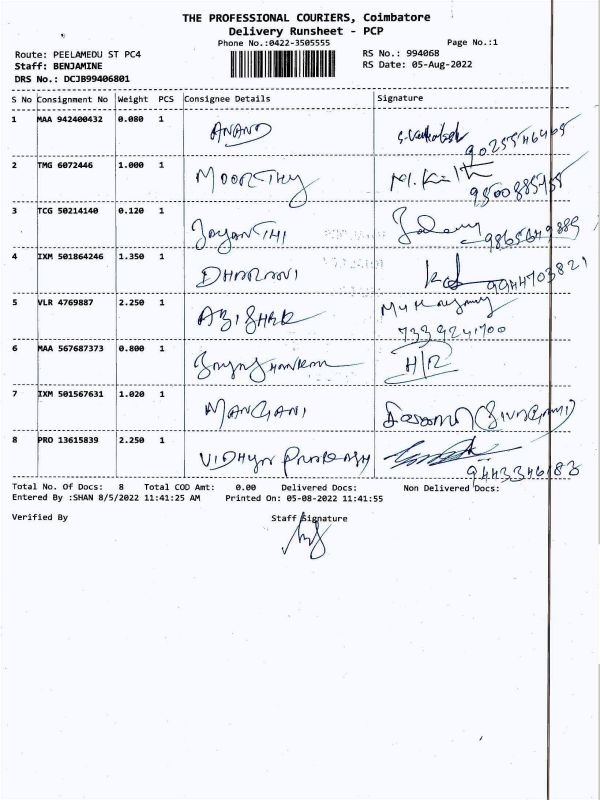 THE PROFESSIONAL COURIERS, Coimbatore
Delivery Runsheet - PCP
Phone No.:0422-3505555 Page No.:1
Route: PEELAMEDU ST PC4 RS No.: 994068
Staff: BENJAMINE RS Date: 05-Aug-2022
DRS No.: DCJB99406801
S No Consignment No Weight PCS Consignee Details Signature
1 MAA 942400432 0.080 1 ANAND
2 TMG 6072446 1.000 1 MOORTHY
3 TCG 50214140 0.120 1 JayanTHI
4 IXM 501864246 1.350 1 DHARANI 9944703821
5 VLR 4769887 2.250 1 7339241700
6 MAA 567687373 0.800 1 H/R
7 IXM 501567631 1.020 1 MANGANI
8 PRO 13615839 2.250 1 VIDHYA
Total No. Of Docs: 8 Total COD Amt: 0.00 Delivered Docs: Non Delivered Docs:
Entered By :SHAN 8/5/2022 11:41:25 AM Printed On: 05-08-2022 11:41:55
Verified By Staff Signature